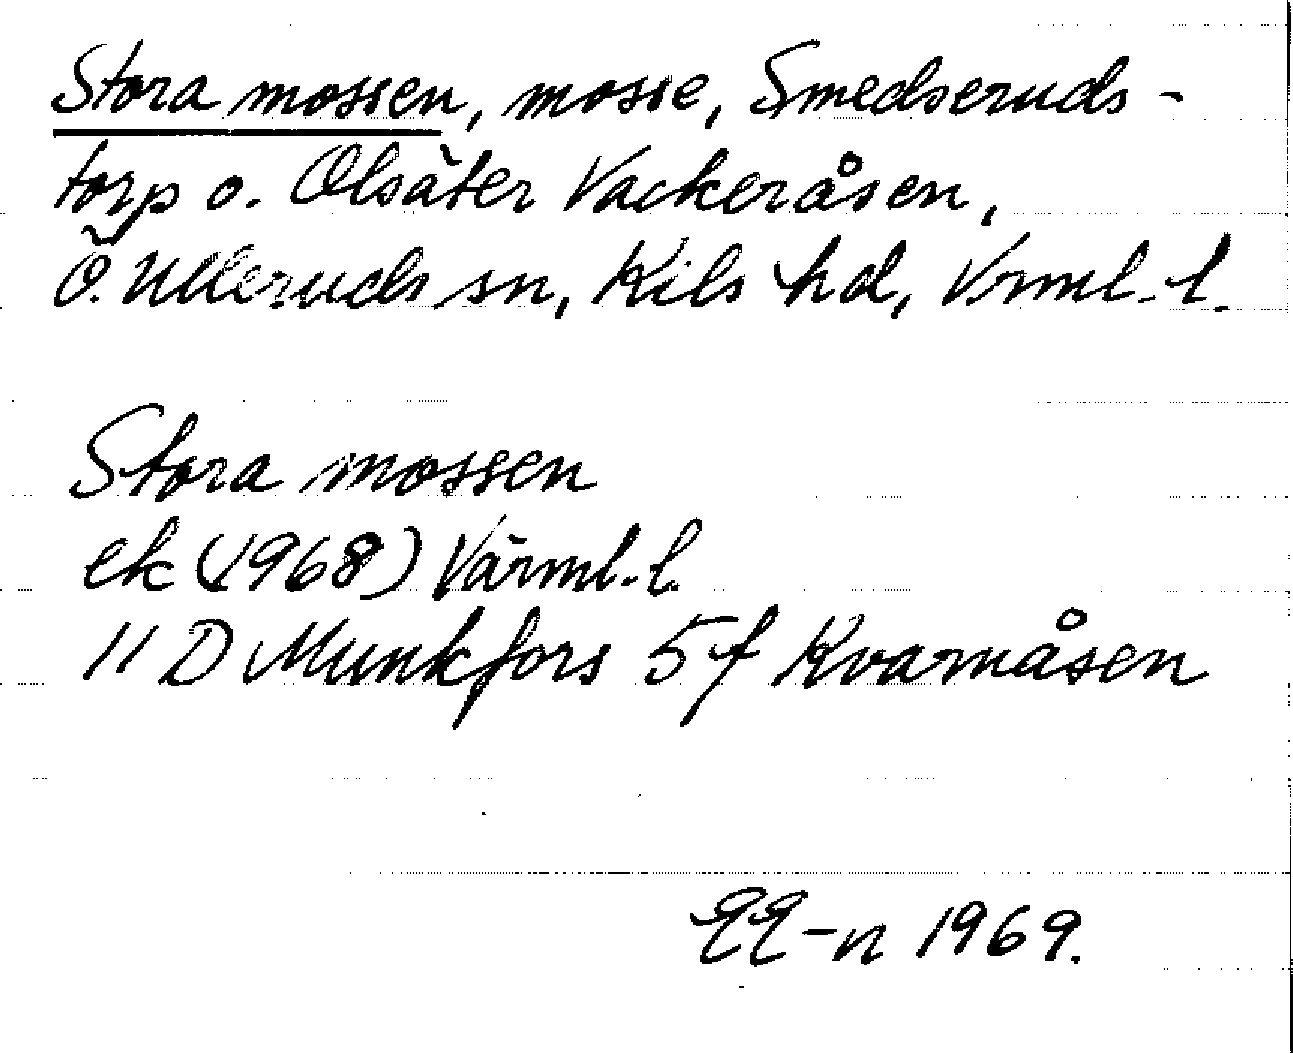 Stora mossen, mosse, Smedseruds-
torp o. Olsäter Vackeråsen,
Ö. Ulleruds sn, Kils hd, Vrml. l.
Stora mossen
ek (1968) Värml. l.
11 D Munkfors 5 f Kvarnåsen
EE-n 1969.